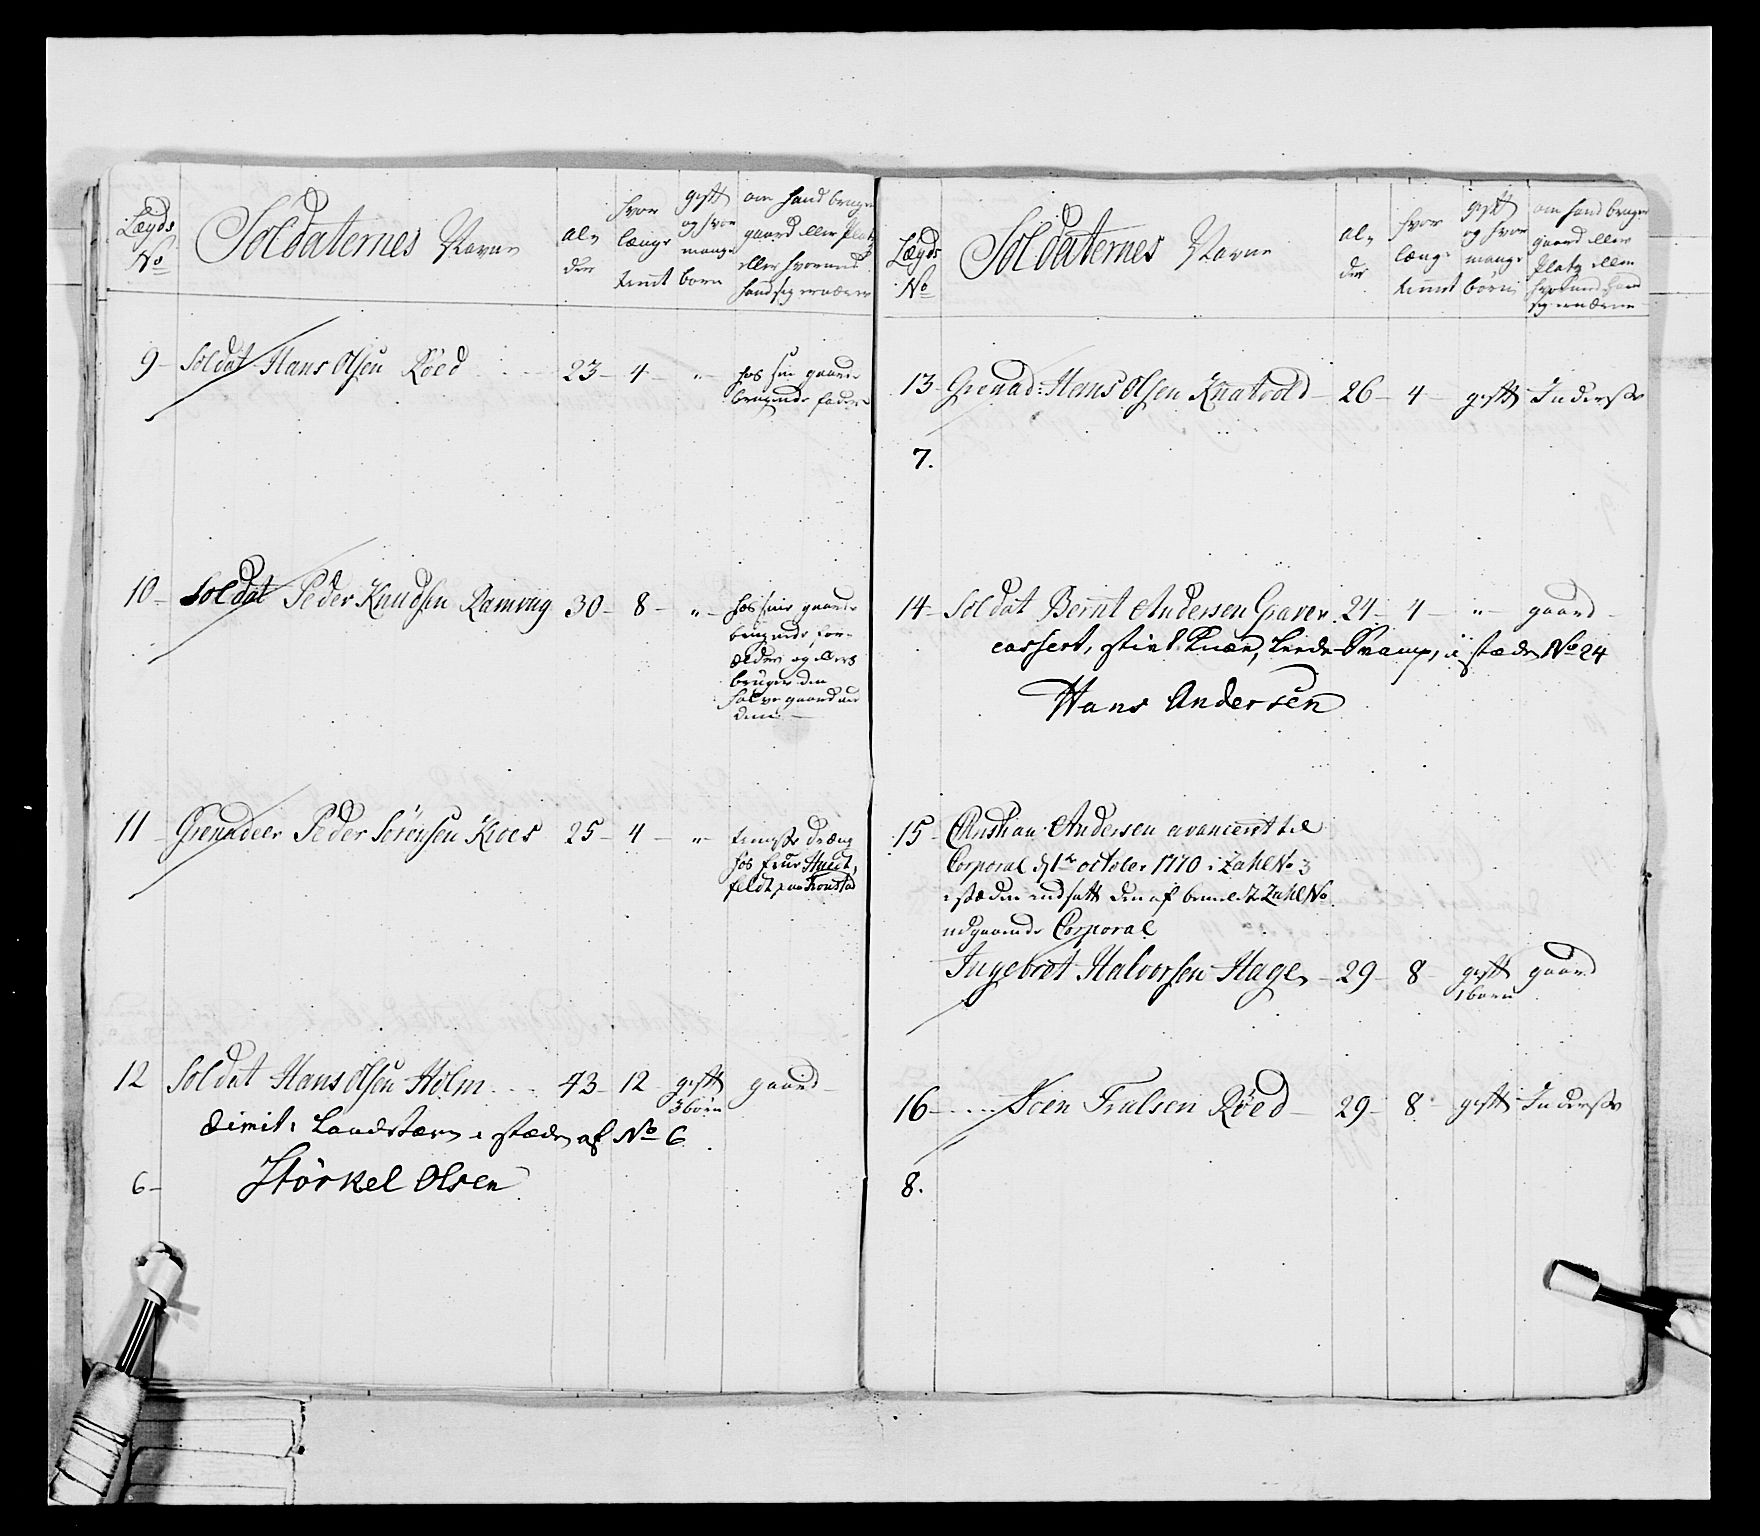 Lægds
No
Soldaternes Navne
al-
der
hvor
længe
tient
gift
og hvor
mange
børn
om hand bruger
gaard eller Platz
eller hvormed
hand sig ernærer
9 - Soldat Hans Olsen Röed 23 - 4 - " - hos sin gaard
brugende fader
10 - Soldat Peder Knudsen Ramvig 30 - 8 - " - hos sine gaard
brugende for-
ældre og ellers
bruger den
halve gaard
11 - Grenadeer Peder Sörensen Kroes 25 - 4 - " - tieneste dræng
hos Frue Huit,
feldt paa Tronstad
12 Soldat Hans Olsen Holm 43 - 12 gift gaard -
3 børn
dimit: Landværn i stæden af No 6
6 - Störkel Olsen
Lægds
No
Soldaternes Navne
al-
der
hvor
længe
tient
gift
og hvor
mange
børn
om hand bruger
gaard eller
Platz eller
hvormed hand
sig ernærer
13 - Grenad: Hans Olsen Knatvold - 26 - 4 - gift Inderste
7.
14 - Soldat Bernt Andersen Graver. 24 - 4 - " - gaard -
cassert, stivt Knæe, i stæden No 24
Hans Andersen
15 - Christian Andersen avanceret til
Corporal d 1te october 1770 i Zahl No 3
i stæden indsatt den af bemelte Zahl No
udgaaende Corporal
Ingebret Halvorsen Hage - 29 - 8 - gift gaard
1 barn
16 - .... Joen Tralsen Röed - 29 - 8 - gift Inderste
8.